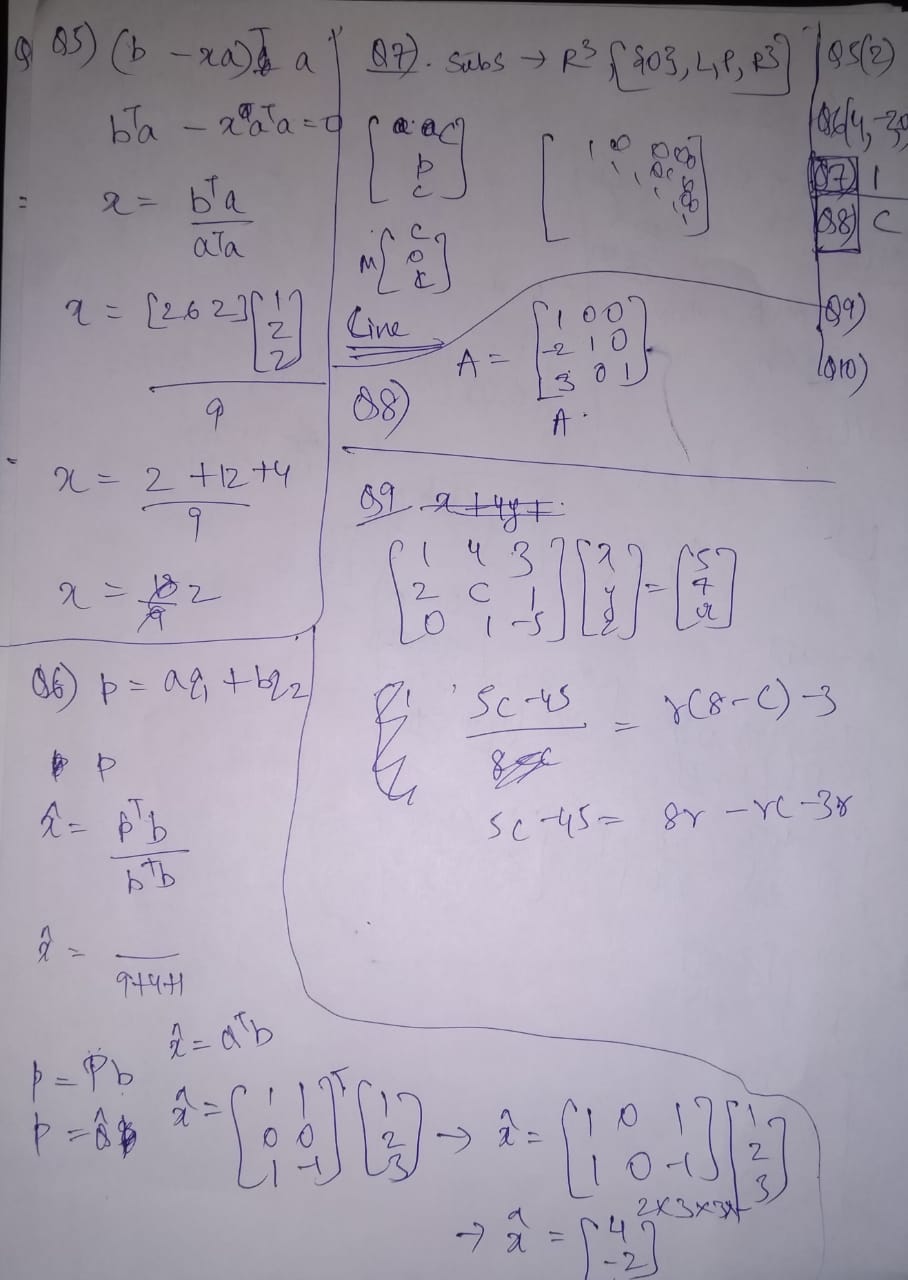 Q5) (b - xa)ᵀ a
bᵀa - xaᵀa = 0
= x = bᵀa / aᵀa
x = [2 6 2] [1 2 2] / 9
x = 2 + 12 + 4 / 9
x = 2
Q6) p = aq₁ + bq₂
p
x̂ = pᵀb / bᵀb
x̂ = / 9+4+1
x̂ = aᵀb
p = Pb
x̂ = [1 1
0 0
1 -1]ᵀ [1 2 3] → x̂ = [1 0 1
1 0 -1] [1 2 3]
2x3x3x
→ x̂ = [4 -2]
Q7). Subs → R³ {{0}, L, P, R³}
b
c
M [c 0
Line
A = [1 0 0
-2 1 0
3 0 1]
Q8)
A
Q9 x + 4y +
[1 4 3
2 c 1
0 1 -5] [x y z] = [5 7 r]
5c-45 / 8-c = r(8-c)-3
5c-45 = 8r - rc - 3r
Q5(2)
Q6(4,-2)
Q7) 1
Q8) C
Q9)
Q10)